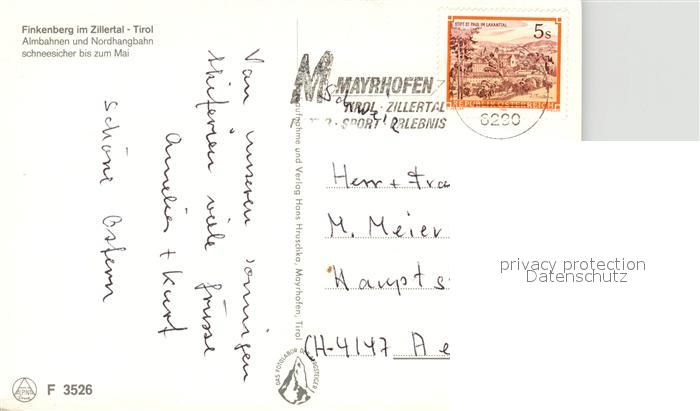 Finkenberg im Zillertal - Tirol
Almbahnen und Nordhangbahn
schneesicher bis zum Mai
Von unseren sonnigen
Skiferien viele Grüsse
Annelies + Kurt
schöne Ostern
F 3526
Aufnahme und Verlag Hans Hruschka, Mayrhofen, Tirol
DAS FOTOLABOR DER BERGSTEIGER
MAYRHOFEN
TIROL · ZILLERTAL
SPORT · ERLEBNIS
6290
STIFT ST. PAUL IM LAVANTTAL
5 s
REPUBLIK ÖSTERREICH
Schweiz
Herr + Fra
M. Meier
Haupts
CH-4147 Ae
privacy protection
Datenschutz